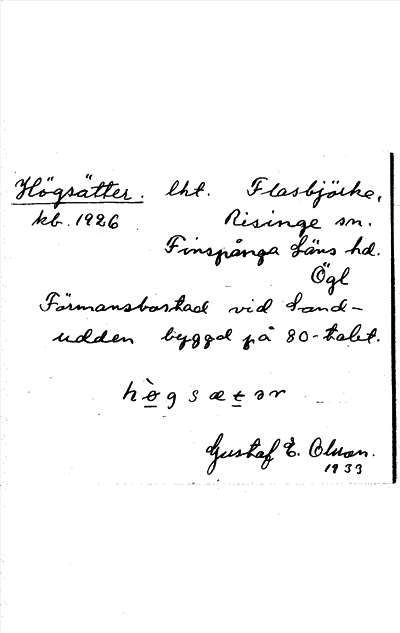 Högsätter. lht. Flasbjörke,
kb. 1926 Risinge sn.
Finspånga Läns hd.
Ögl
Förmansbostad vid Sand-
udden byggd på 80-talet.
hògsætər
Gustaf E. Olson.
1933